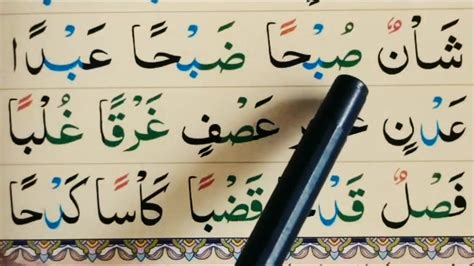 شَأْنٌ صُبْحًا ضَبْحًا عَبْدًا
عَدْنٍ عَصْفٍ غَرْقًا غُلْبًا
فَصْلٌ قَضْبًا كَأْسًا كَدْحًا